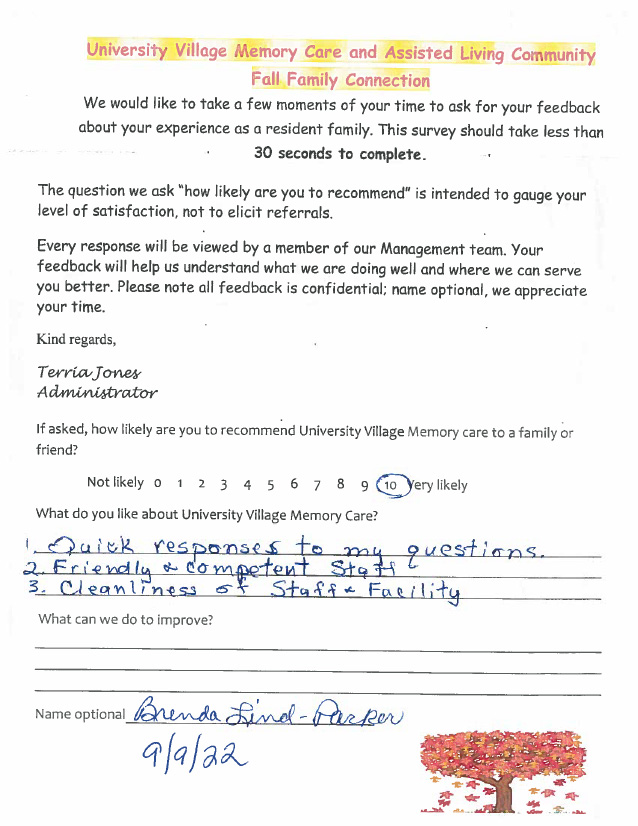 University Village Memory Care and Assisted Living Community
Fall Family Connection
We would like to take a few moments of your time to ask for your feedback
about your experience as a resident family. This survey should take less than
30 seconds to complete.
The question we ask "how likely are you to recommend" is intended to gauge your
level of satisfaction, not to elicit referrals.
Every response will be viewed by a member of our Management team. Your
feedback will help us understand what we are doing well and where we can serve
you better. Please note all feedback is confidential; name optional, we appreciate
your time.
Kind regards,
Terria Jones
Administrator
If asked, how likely are you to recommend University Village Memory care to a family or
friend?
Not likely 0 1 2 3 4 5 6 7 8 9 10 Very likely
What do you like about University Village Memory Care?
1. Quick responses to my questions.
2. Friendly & competent Staff
3. Cleanliness of Staff & Facility
What can we do to improve?
Name optional Brenda Lind-Parker
9/9/22